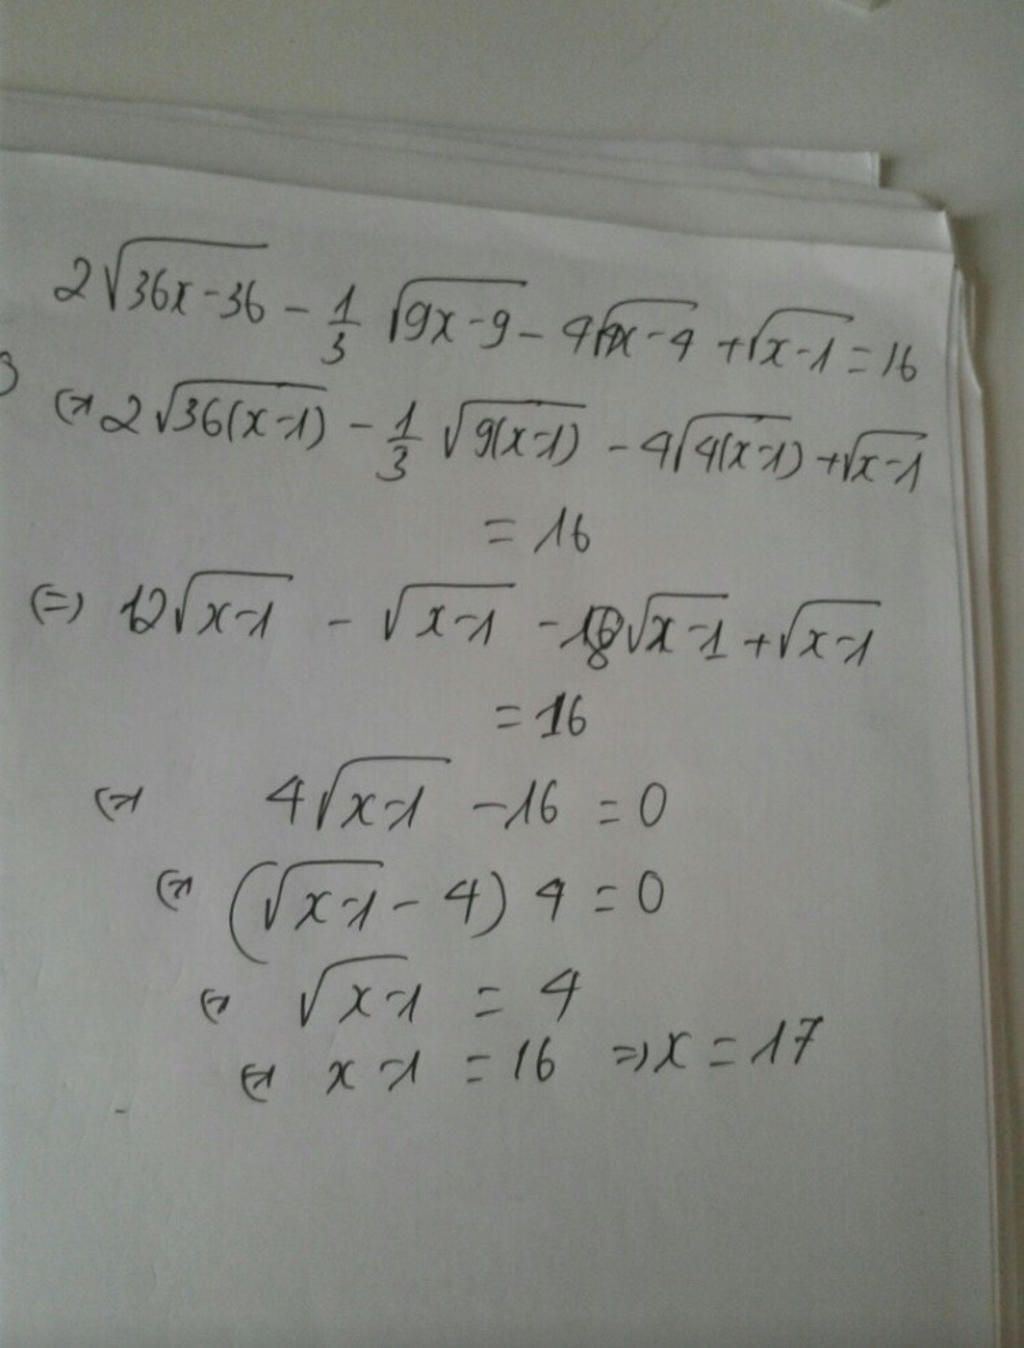 2√(36x-36) - 1/3 √(9x-9) - 4√(4x-4) + √(x-1) = 16
(=) 2√(36(x-1)) - 1/3 √(9(x-1)) - 4√(4(x-1)) + √(x-1)
= 16
(=) 12√(x-1) - √(x-1) - 8√(x-1) + √(x-1)
= 16
(=) 4√(x-1) - 16 = 0
(=) (√(x-1) - 4) 4 = 0
(=) √(x-1) = 4
(=) x-1 = 16 => x = 17